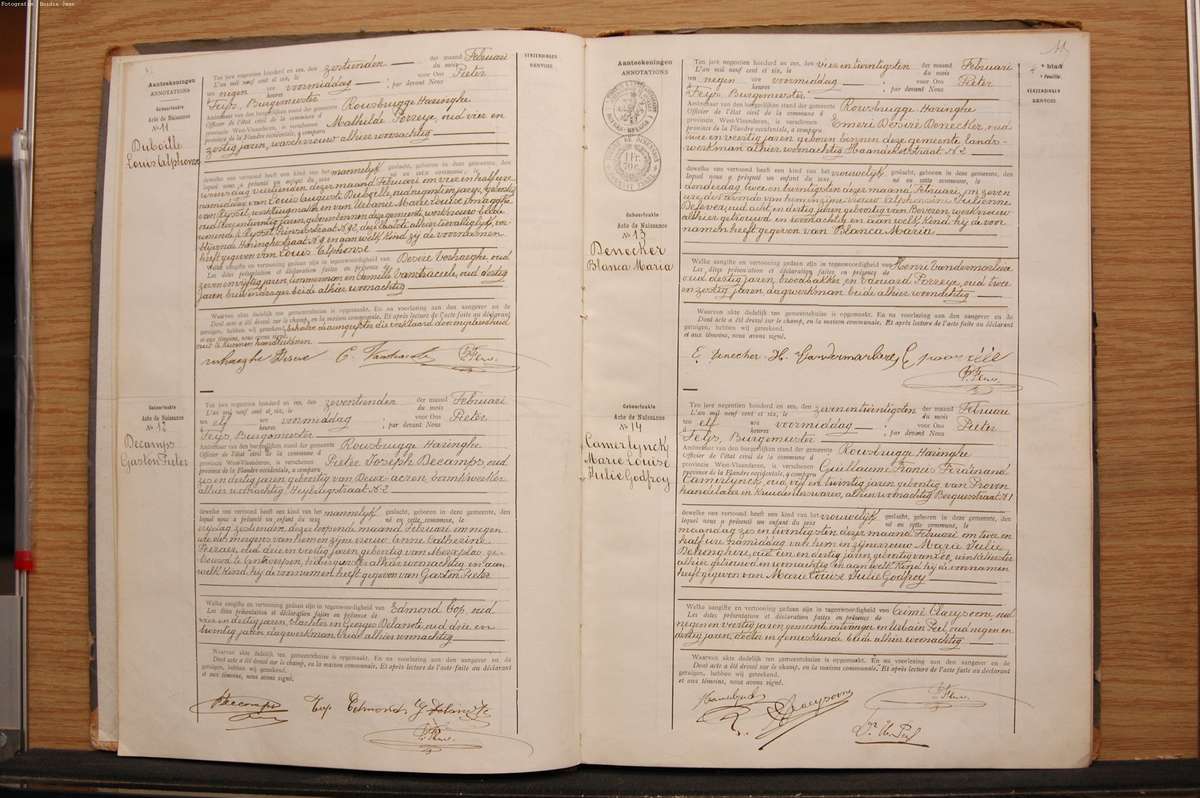 Fotografie: Guidis Jean
Aanteekeningen
ANNOTATIONS
Geboorteakte
Acte de Naissance
No 11
Duboille
Louis Alphonse
VERZENDINGEN
RENVOIS
Ten jare negentien honderd en zes, den zestienden der maand Februari
L'an mil neuf cent et six, le du mois
ten negen ure voormiddag voor Ons Pieter
heures ; par devant Nous
Feijs, Burgemeester
Ambtenaar van den burgerlijken stand der gemeente Rousbrugge Haringhe
Officier de l'état civil de la commune d
provincie West-Vlaanderen, is verschenen Mathilde Perreye, oud vier en
province de la Flandre occidentale, a comparu
zestig jaren, waschvrouw alhier woonachtig
dewelke ons vertoond heeft een kind van het mannelijk geslacht, geboren in deze gemeente, den
lequel nous a présenté un enfant du sexe né en cette commune, le
woensdag veertienden dezer maand Februari om vier en half ure
namiddag van Louis Auguste Duboille, oud negentien jaren, geboortig
heeft gegeven van Louis Alphonse
Welke aangifte en vertooning gedaan zijn in tegenwoordigheid van Desiré Verhaeghe, oud
Les dites présentation et déclaration faites en présence de
zeven en vijftig jaren, timmerman en Camille Vanhaecke, oud dertig
jaren brievendrager beide alhier woonachtig
Waarvan akte dadelijk ten gemeentehuize is opgemaakt. En na voorlezing aan den aangever en de
Dont acte a été dressé sur le champ, en la maison communale. Et après lecture de l'acte faite au déclarant
getuigen, hebben wij geteekend, behalve de aangeefster die verklaard
et aux témoins, nous avons signé.
Verhaeghe Desiré C. Vanhaecke P. Feys
Geboorteakte
Acte de Naissance
No 12
Decamps
Gaston Pieter
Ten jare negentien honderd en zes, den zeventienden der maand Februari
L'an mil neuf cent et six, le du mois
ten elf ure voormiddag voor Ons Pieter
heures ; par devant Nous
Feijs Burgemeester
Ambtenaar van den burgerlijken stand der gemeente Rousbrugge Haringhe
Officier de l'état civil de la commune d
provincie West-Vlaanderen, is verschenen Pieter Joseph Decamps, oud
province de la Flandre occidentale, a comparu
zes en dertig jaren geboortig van Deux-acren,
alhier woonachtig,
dewelke ons vertoond heeft een kind van het mannelijk geslacht, geboren in deze gemeente, den
lequel nous a présenté un enfant du sexe né en cette commune, le
vrijdag zestienden dezer loopende maand Februari om negen
ure des morgens van hem en zijne vrouw Anne Catherine
oud drie en veertig jaren geboortig van Merxplas
alhier woonachtig en aan
welk kind hij de voornamen heeft gegeven van Gaston Pieter
Welke aangifte en vertooning gedaan zijn in tegenwoordigheid van Edmond Cop, oud
Les dites présentation et déclaration faites en présence de
vier en dertig jaren, slachter en Georges Delanote, oud drie en
twintig jaren dagwerkman beide alhier woonachtig
Waarvan akte dadelijk ten gemeentehuize is opgemaakt. En na voorlezing aan den aangever en de
Dont acte a été dressé sur le champ, en la maison communale. Et après lecture de l'acte faite au déclarant
getuigen, hebben wij geteekend.
et aux témoins, nous avons signé.
Decamps Cop Edmond G. Delanote
P. Feys
Aanteekeningen
ANNOTATIONS
Geboorteakte
Acte de Naissance
No 13
Denecker
Blanca Maria
blad
feuille.
VERZENDINGEN
RENVOIS
Ten jare negentien honderd en zes, den vier en twintigsten der maand Februari
L'an mil neuf cent et six, le du mois
ten negen ure voormiddag voor Ons Pieter
heures ; par devant Nous
Feijs Burgemeester
Ambtenaar van den burgerlijken stand der gemeente Rousbrugge Haringhe
Officier de l'état civil de la commune d
provincie West-Vlaanderen, is verschenen Emeri Desiré Denecker, oud
province de la Flandre occidentale, a comparu
en veertig jaren geboren binnen deze gemeente lands-
werkman alhier woonachtig Haandekotstraat N. 2
dewelke ons vertoond heeft een kind van het vrouwelijk geslacht, geboren in deze gemeente, den
lequel nous a présenté un enfant du sexe né en cette commune, le
donderdag twee en twintigsten dezer maand Februari, om zeven
ure des avonds van hem en zijne vrouw Alphonsine Julienne
oud acht en dertig jaren geboortig van Beveren werkvrouw
alhier gehuwd en woonachtig en aan welk kind hij de voor
namen heeft gegeven van Blanca Maria
Welke aangifte en vertooning gedaan zijn in tegenwoordigheid van Henri Vandermarliere
Les dites présentation et déclaration faites en présence de
oud dertig jaren, broodbakker en Edouard Perreye, oud twee
en zestig jaren, dagwerkman beide alhier woonachtig
Waarvan akte dadelijk ten gemeentehuize is opgemaakt. En na voorlezing aan den aangever en de
Dont acte a été dressé sur le champ, en la maison communale. Et après lecture de l'acte faite au déclarant
getuigen, hebben wij geteekend.
et aux témoins, nous avons signé.
E. Denecker H. Vandermarliere
P. Feys
Geboorteakte
Acte de Naissance
No 14
Camerlynck
Marie Louise
Julie Godfroy
Ten jare negentien honderd en zes, den zeven en twintigsten der maand Februari
L'an mil neuf cent et six, le du mois
ten elf ure voormiddag voor Ons Pieter
heures ; par devant Nous
Feijs, Burgemeester
Ambtenaar van den burgerlijken stand der gemeente Rousbrugge Haringhe
Officier de l'état civil de la commune d
provincie West-Vlaanderen, is verschenen Guillaume Francis Ferdinand
province de la Flandre occidentale, a comparu
Camerlynck, oud vijf en twintig jaren, geboortig van Proven
handelaar in kruidenierswaren, alhier woonachtig Berguesstraat N. 1
dewelke ons vertoond heeft een kind van het vrouwelijk geslacht, geboren in deze gemeente, den
lequel nous a présenté un enfant du sexe né en cette commune, le
maandag zes en twintigsten dezer maand Februari, om twee en
half ure namiddag van hem en zijne vrouw Marie Julie
oud een en dertig jaren geboortig van Loo, winkelierster
alhier gehuwd en woonachtig en aan welk kind hij de voornamen
heeft gegeven van Marie Louise Julie Godfroy
Welke aangifte en vertooning gedaan zijn in tegenwoordigheid van Aimé Claeyssoone, oud
Les dites présentation et déclaration faites en présence de
negen en veertig jaren, gemeente ontvanger en Peel, oud negen en
dertig jaren, doctor in geneeskunde beide alhier woonachtig
Waarvan akte dadelijk ten gemeentehuize is opgemaakt. En na voorlezing aan den aangever en de
Dont acte a été dressé sur le champ, en la maison communale. Et après lecture de l'acte faite au déclarant
getuigen, hebben wij geteekend.
et aux témoins, nous avons signé.
Camerlynck Claeyssoone P. Feys